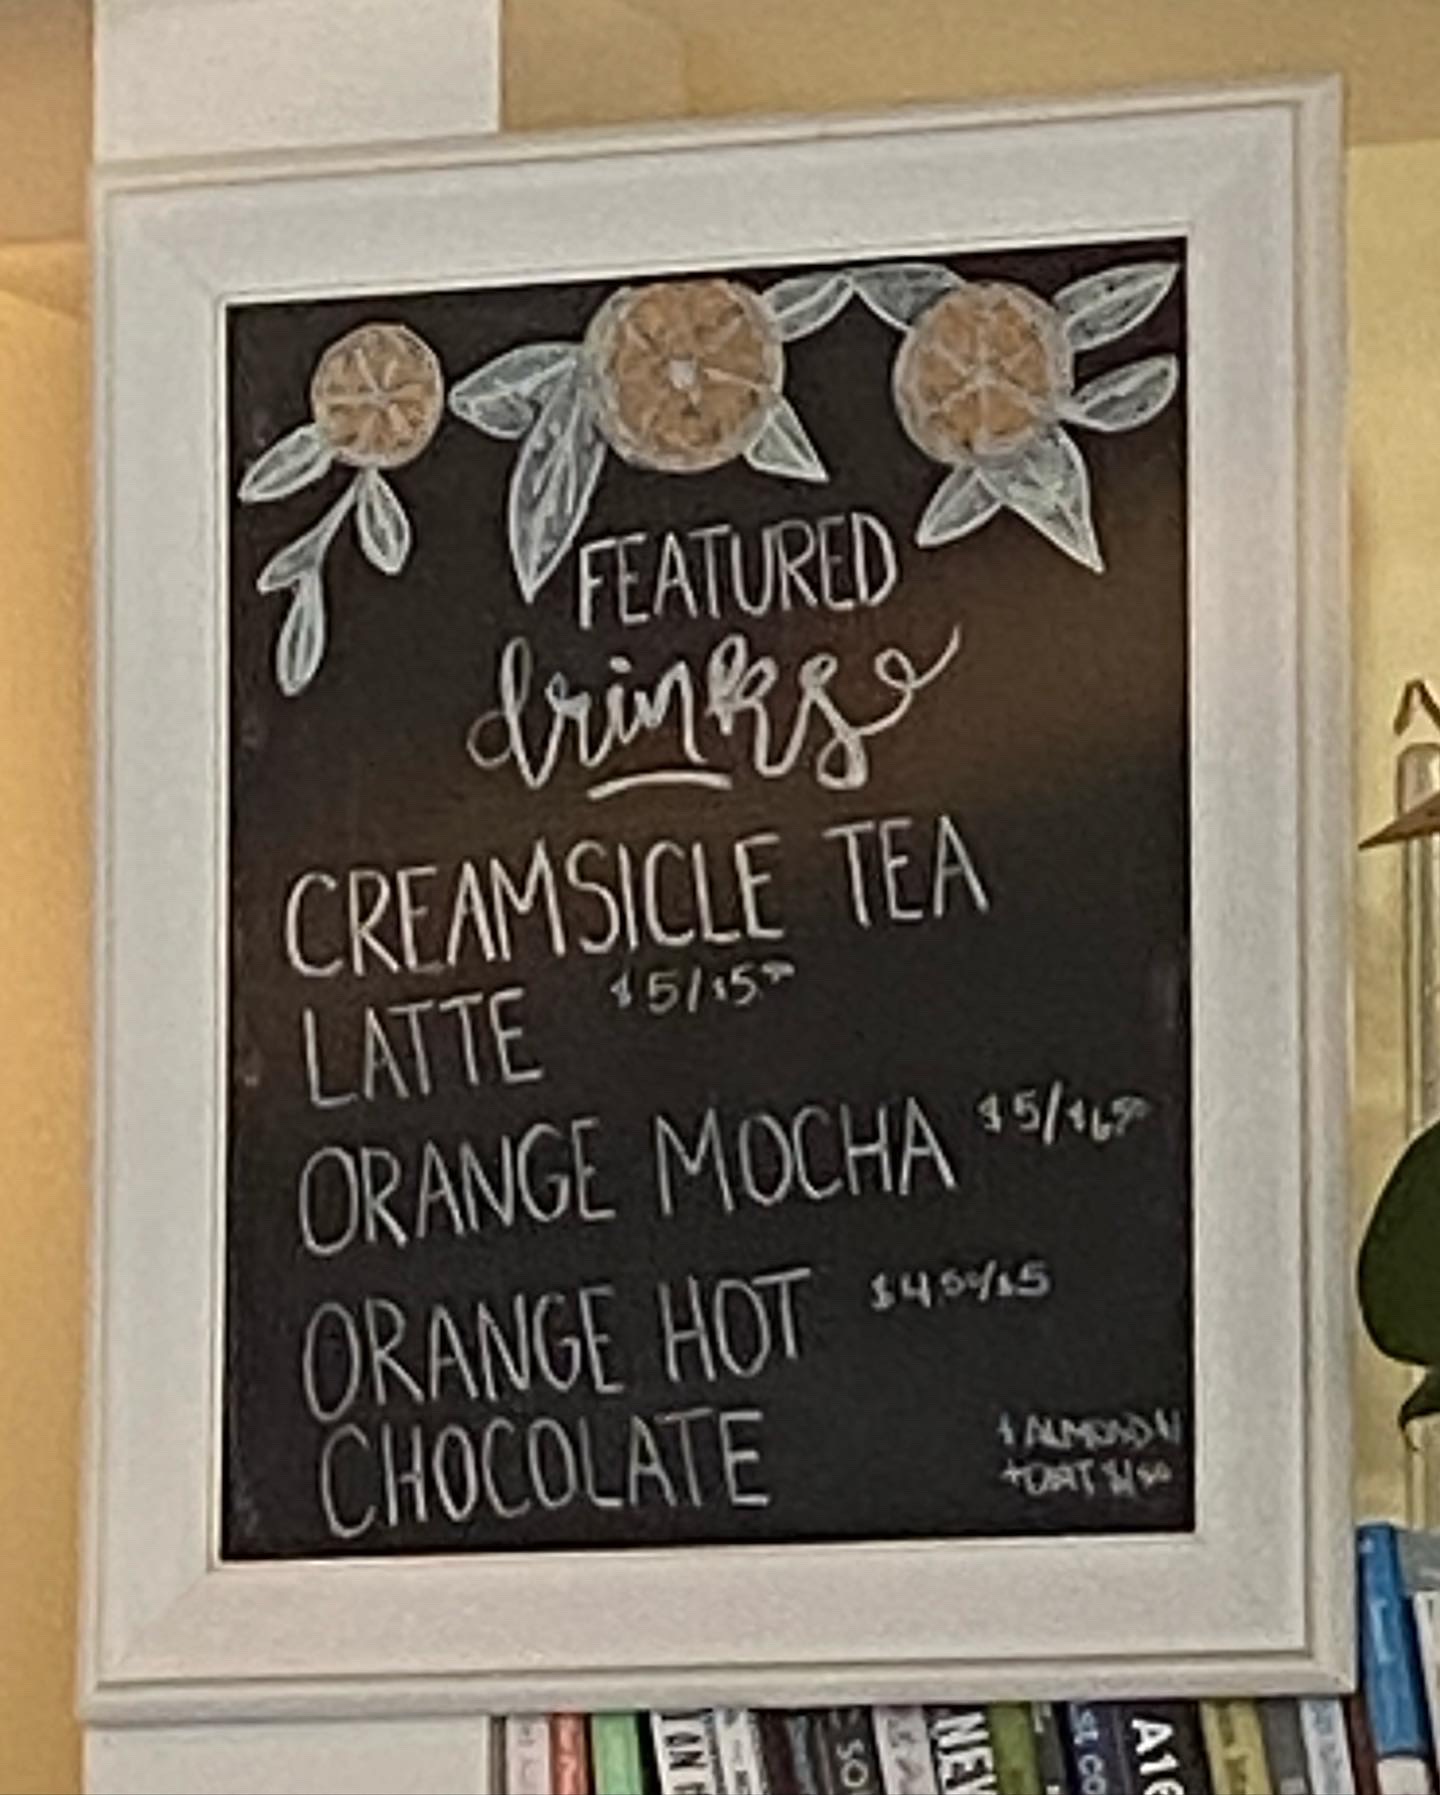 FEATURED
drinks
CREAMSICLE TEA
LATTE $5/$5.50
ORANGE MOCHA $5/$6.50
ORANGE HOT $4.50/$5
CHOCOLATE
+ ALMOND $1
+ OAT $1.50
ON
SO
NEW